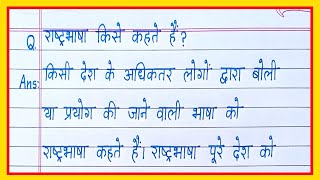 Q. राष्ट्रभाषा किसे कहते हैं?
Ans: किसी देश के अधिकतर लोगों द्वारा बोली
या प्रयोग की जाने वाली भाषा को
राष्ट्रभाषा कहते हैं। राष्ट्रभाषा पूरे देश को